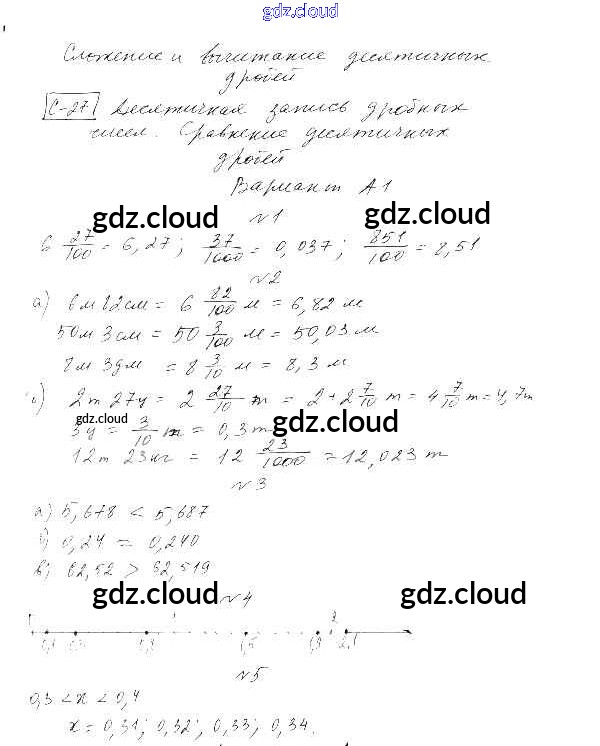 gdz.cloud
Сложение и вычитание десятичных
дробей
С-27 Десятичная запись дробных
чисел. Сравнение десятичных
дробей
Вариант А1
gdz.cloud gdz.cloud
№1
6 27/100 = 6,27; 37/1000 = 0,037; 851/100 = 8,51
№2
а) 6м 82см = 6 82/100 м = 6,82 м
50м 3см = 50 3/100 м = 50,03 м
8м 3дм = 8 3/10 м = 8,3 м
2т 27ц = 2 27/10 т = 2+2 7/10 т = 4 7/10 т = 4,7т
gdz.cloud gdz.cloud
3ц = 3/10 т = 0,3 т
12т 23кг = 12 23/1000 = 12,023 т
№3
а) 5,678 < 5,687
б) 0,24 = 0,240
в) 62,52 > 62,519
gdz.cloud gdz.cloud
№4
2,1
№5
0,3 < x < 0,4
x = 0,31; 0,32; 0,33; 0,34.